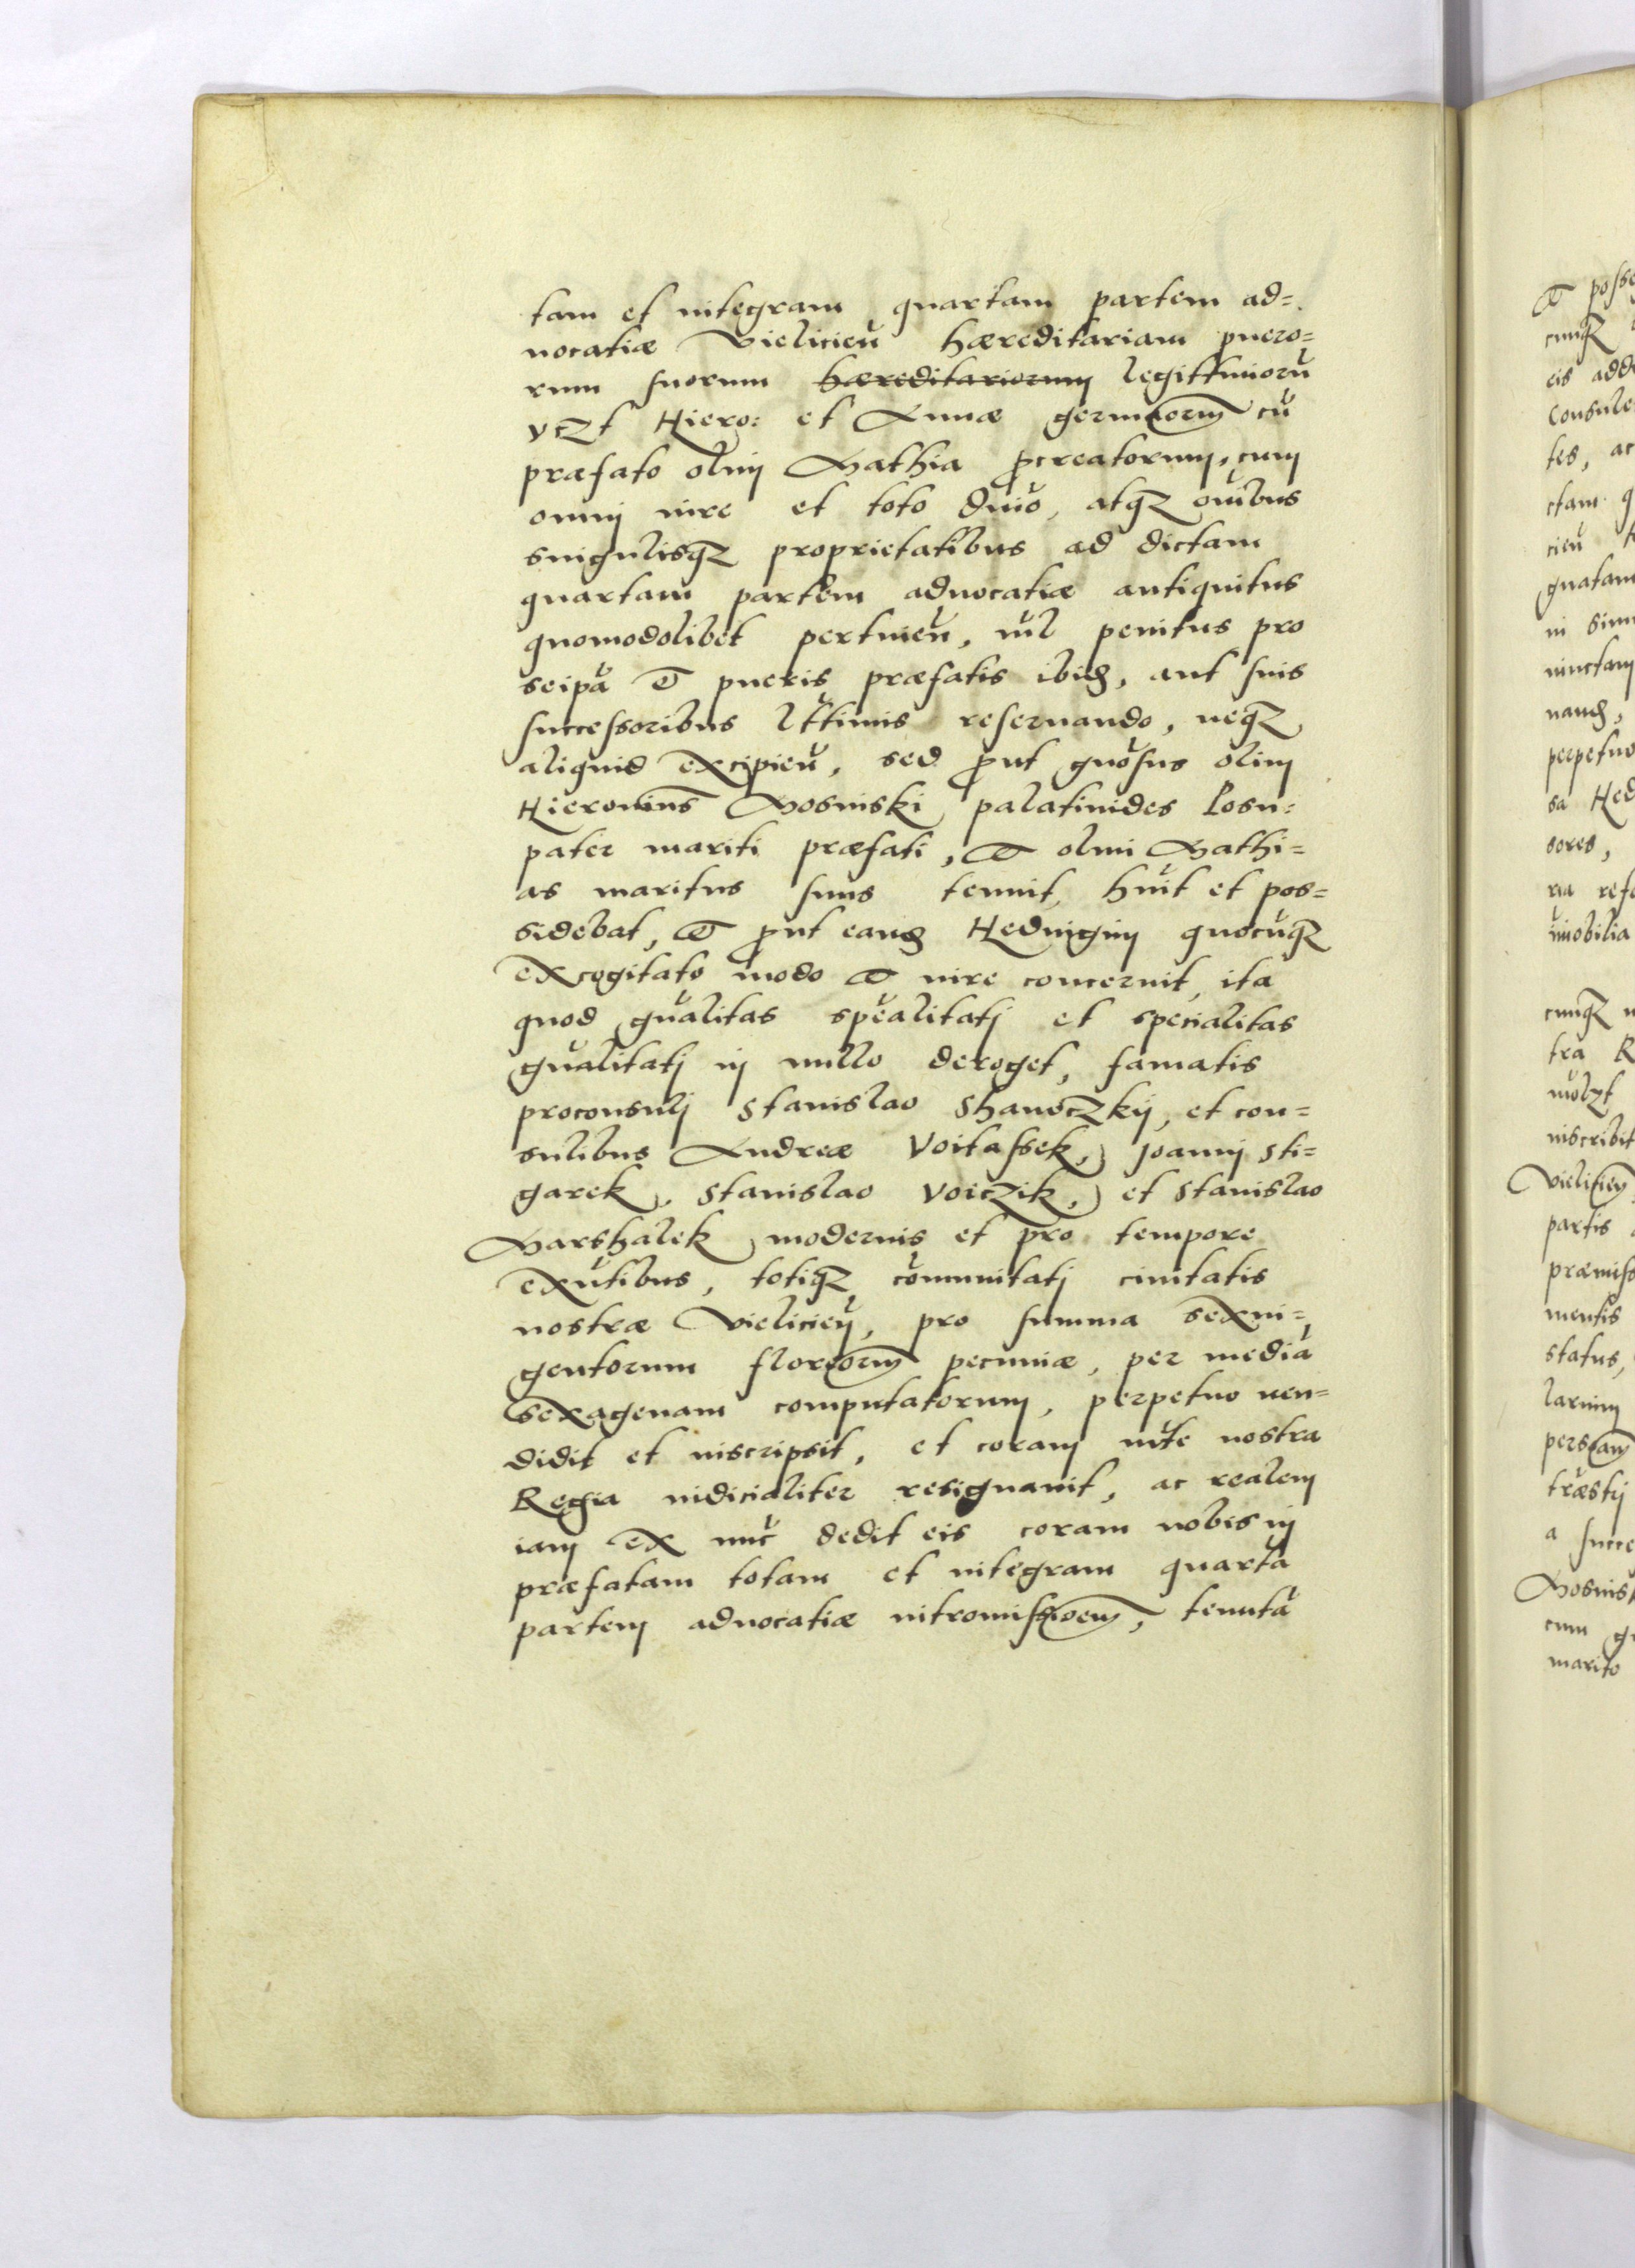 tam et integram quartam partem ad=
uocatiæ Vielicieñ hæreditariam puero=
rum suorum hæreditariorum legittimorũ
vczt Hiero: et Annæ germaorum cũ
præfato olim Mathia p̱creatorum, cum
omni iure et toto dnio, atq₃ omibus
singulisq₃ proprietatibus ad dictam
quartam partem aduocatiæ antiquitus
quomodolibet pertineñ, nil penitus pro
seipa et pueris præfatis ibid, aut suis
successoribus lttimis reseruando, neq₃
aliquid excipieñ, sed p̱ut gnosus olim
Hieronimus Mosinski palatinides Posn:
pater mariti præfati, et olim Mathi=
as maritus suus tenuit, huit et pos=
sidebat, et p̱ut eand Heduigim quocũq₃
excogitato modo et iure concernit, ita
quod gñalitas spealitatj et specialitas
gñalitatj in nullo deroget, famatis
proconsulj Stanislao Shanoczkij, et con=
sulibus Andreæ Voitassek, Joannj Sti=
garek, Stanislao Voiczik, et Stanislao
Marshalek modernis et pro tempore
exñtibus, totiq₃ cõmunitatj ciuitatis
nostræ Vielicieñ, pro summa sexin=
gentorum floreorum pecuniæ, per mediã
sexagenam computatorum, perpetuo uen=
didit et inscripsit, et coram mte nostra
Regia iudicialiter resignauit, ac realem
iam ex nũc dedit eis coram nobis in
præfatam totam et integram quartã
partem aduocatiæ intromissioem, tenutã